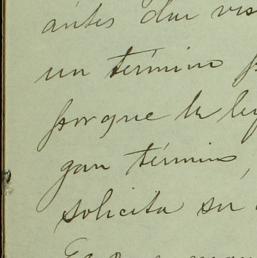 antes dar vis
un término p
porque la le
gan término
solicita su